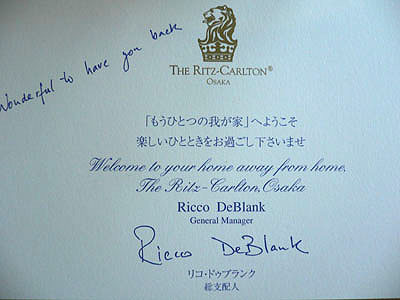 Wonderful to have you back
THE RITZ-CARLTON®
OSAKA
「もうひとつの我が家」へようこそ
楽しいひとときをお過ごし下さいませ
Welcome to your home away from home.
The Ritz-Carlton, Osaka
Ricco DeBlank
General Manager
Ricco DeBlank
リコ・ドゥブランク
総支配人